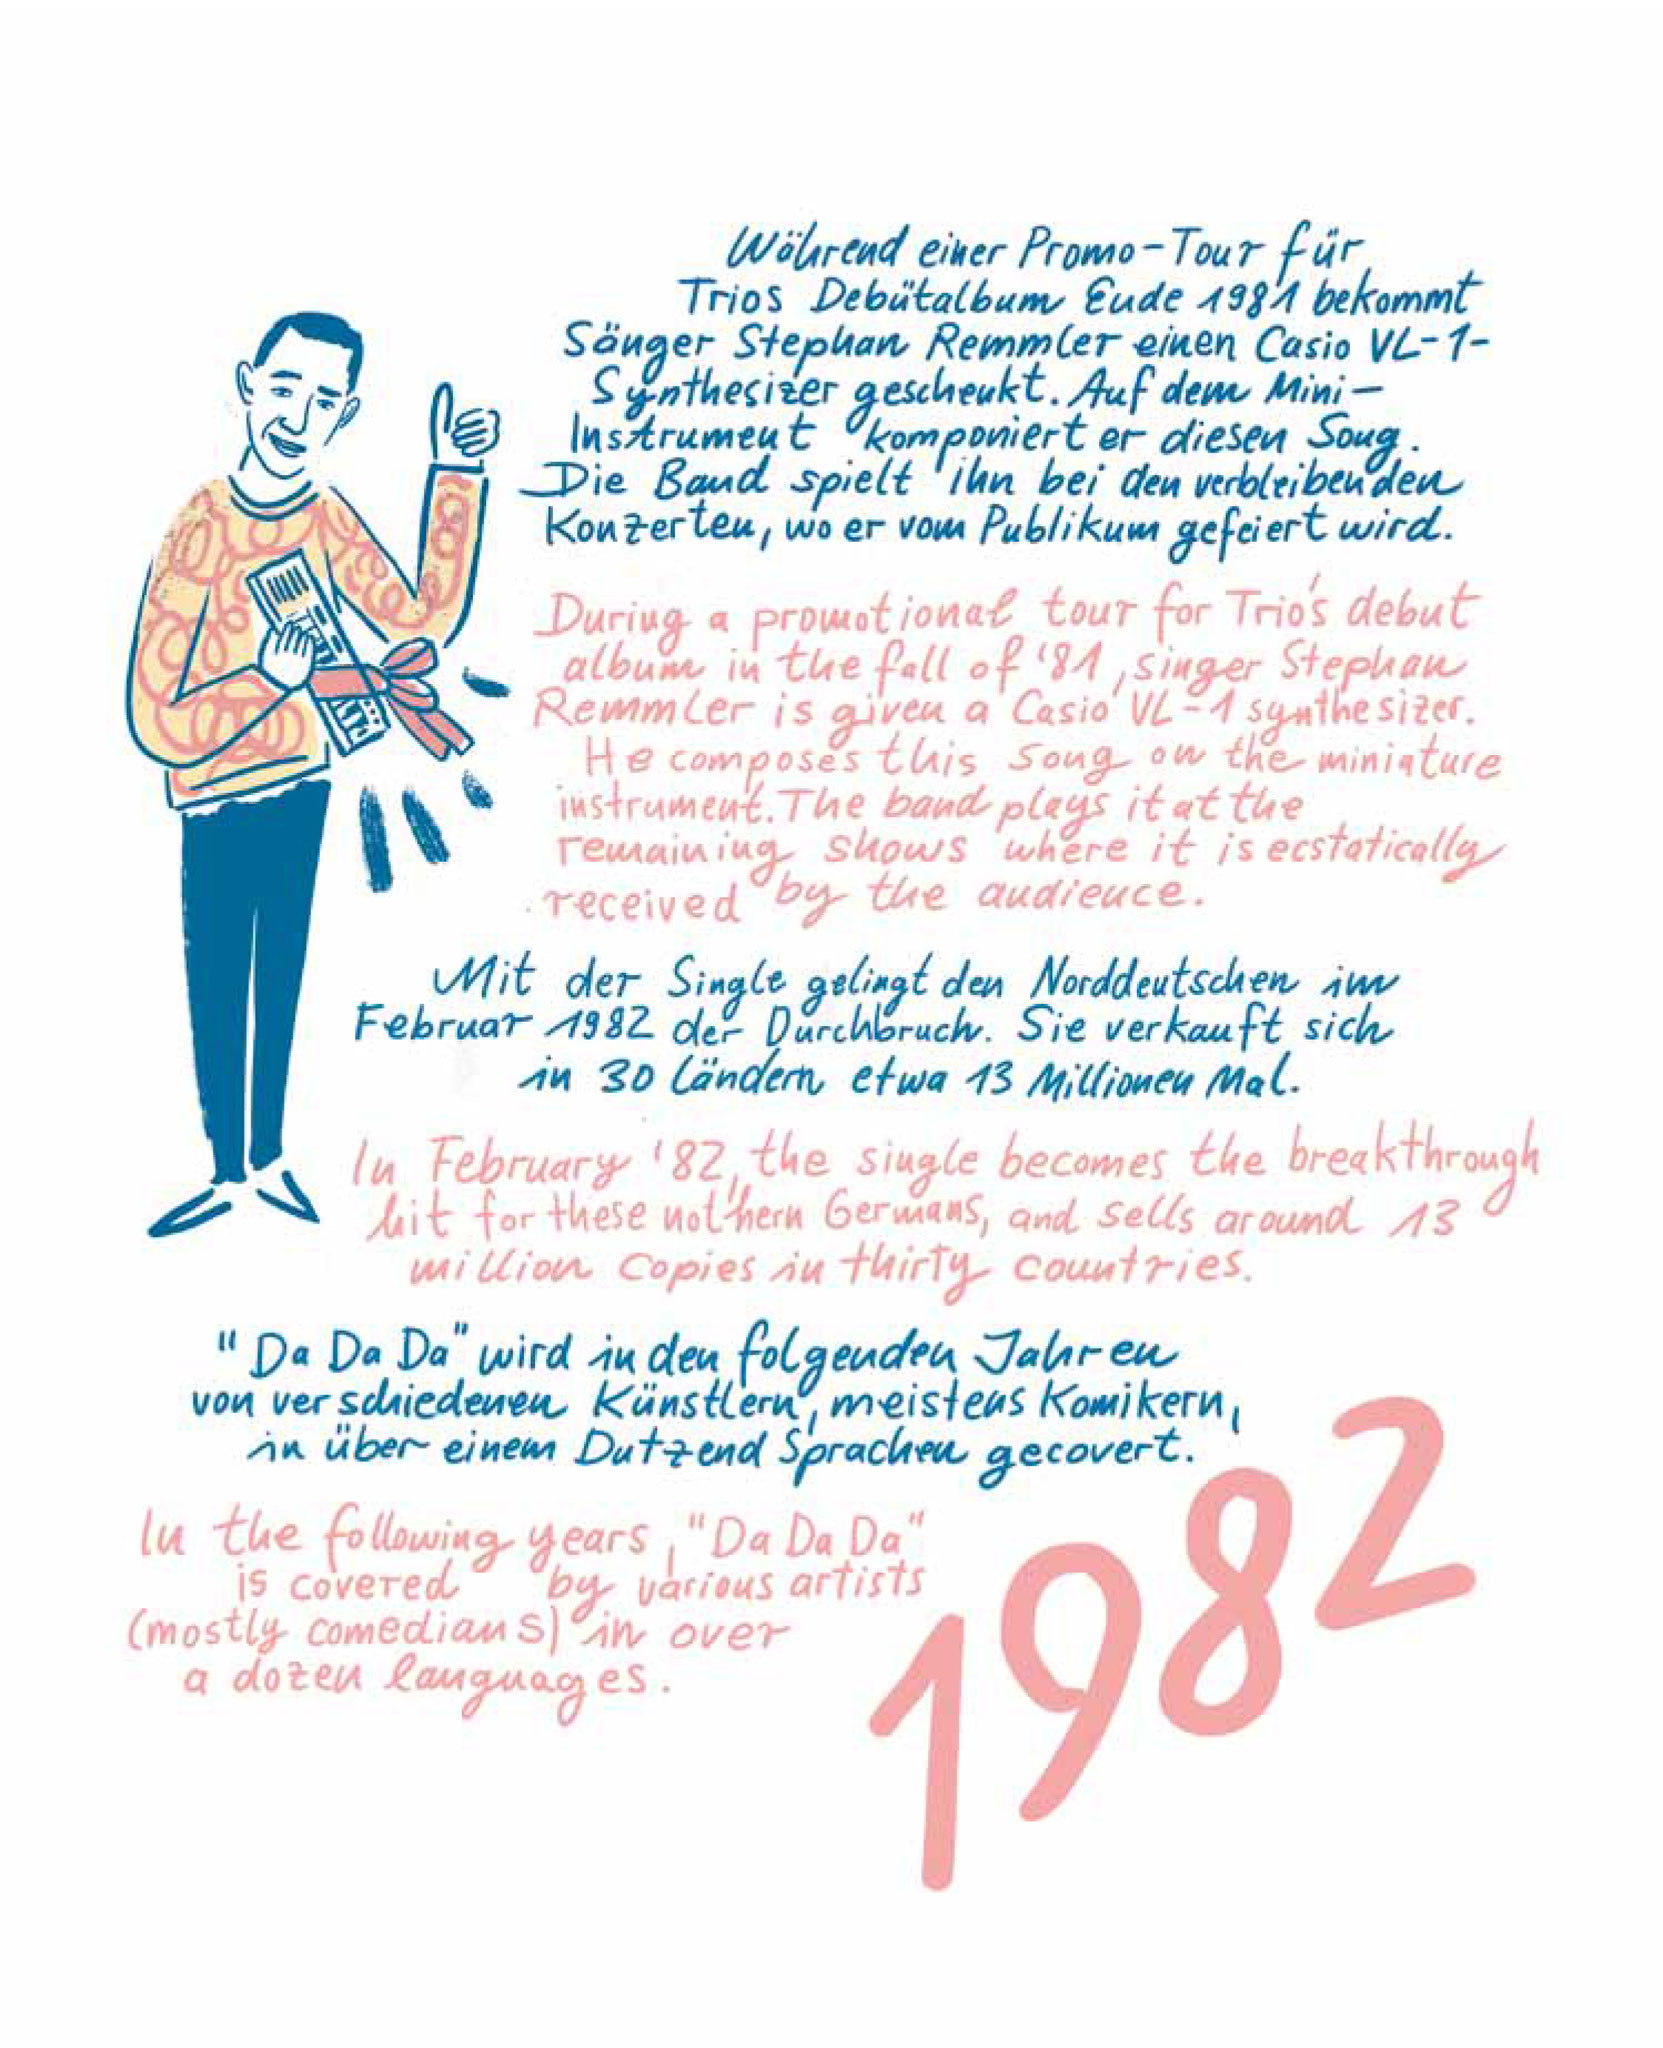 Während einer Promo-Tour für
Trios Debütalbum Ende 1981 bekommt
Sänger Stephan Remmler einen Casio VL-1-
Synthesizer geschenkt. Auf dem Mini-
Instrument komponiert er diesen Song.
Die Band spielt ihn bei den verbleibenden
Konzerten, wo er vom Publikum gefeiert wird.
During a promotional tour for Trio's debut
album in the fall of '81, singer Stephan
Remmler is given a Casio VL-1 synthesizer.
He composes this song on the miniature
instrument. The band plays it at the
remaining shows where it is ecstatically
received by the audience.
Mit der Single gelingt den Norddeutschen im
Februar 1982 der Durchbruch. Sie verkauft sich
in 30 Ländern etwa 13 Millionen Mal.
In February '82, the single becomes the breakthrough
hit for these nothern Germans, and sells around 13
million copies in thirty countries.
"Da Da Da" wird in den folgenden Jahren
von verschiedenen Künstlern, meistens Komikern,
in über einem Dutzend Sprachen gecovert.
In the following years, "Da Da Da"
is covered by various artists
(mostly comedians) in over
a dozen languages.
1982